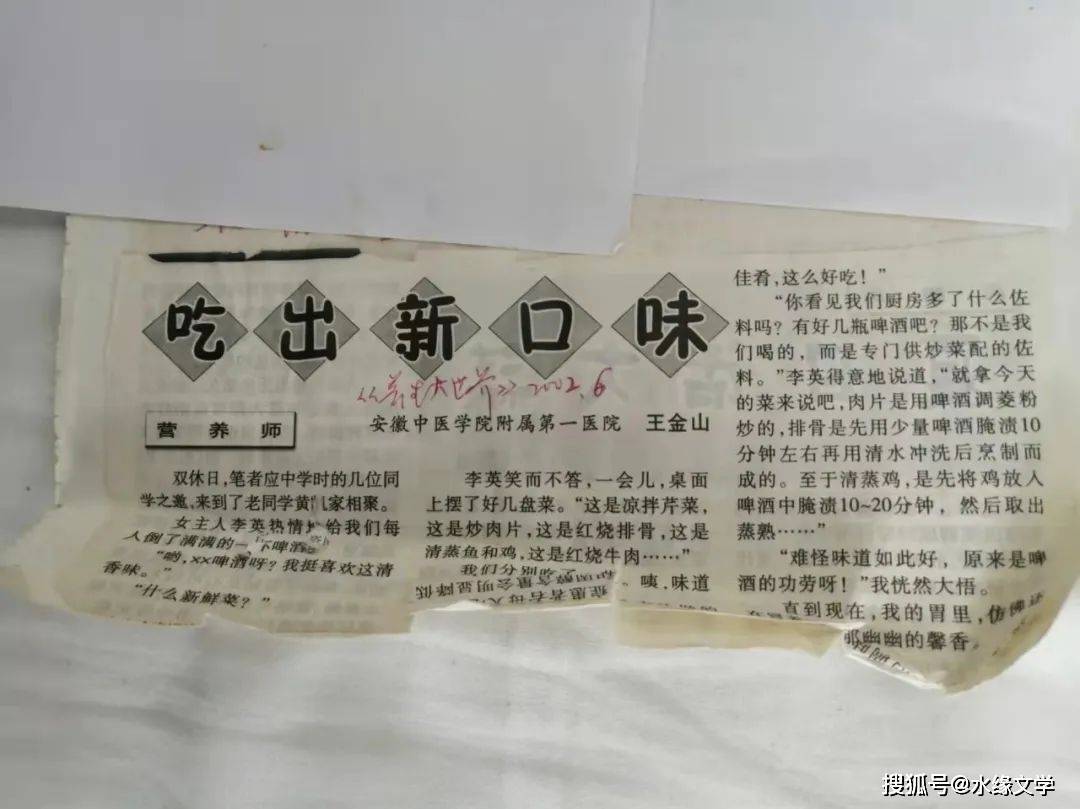 吃出新口味
《养生大世界》2002.6
安徽中医学院附属第一医院 王金山
营养师
双休日，笔者应中学时的几位同
学之邀，来到了老同学黄 家相聚。
女主人李英热情 给我们每
人倒了满满的一 啤酒
“哟，xx啤酒呀？我挺喜欢这清
香味。”
“什么新鲜菜？”
李英笑而不答，一会儿，桌面
上摆了好几盘菜。“这是凉拌芹菜，
这是炒肉片，这是红烧排骨，这是
清蒸鱼和鸡，这是红烧牛肉……”
我们分别
。咦，味道
佳肴，这么好吃！”
“你看见我们厨房多了什么佐
料吗？有好几瓶啤酒吧？那不是我
们喝的，而是专门供炒菜配的佐
料。”李英得意地说道，“就拿今天
的菜来说吧，肉片是用啤酒调菱粉
炒的，排骨是先用少量啤酒腌渍10
分钟左右再用清水冲洗后烹制而
成的。至于清蒸鸡，是先将鸡放入
啤酒中腌渍10~20分钟，然后取出
蒸熟……”
“难怪味道如此好，原来是啤
酒的功劳呀！”我恍然大悟。
直到现在，我的胃里，仿佛还
那幽幽的馨香。
搜狐号@水缘文学